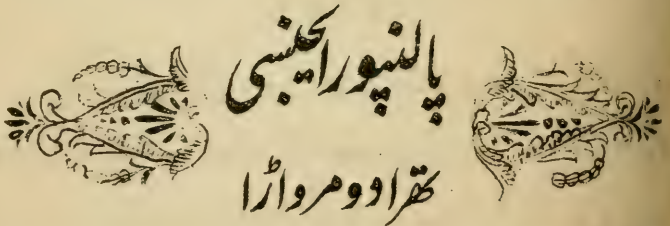 پالنپور ایجنسی
تھراد و مرواڑا